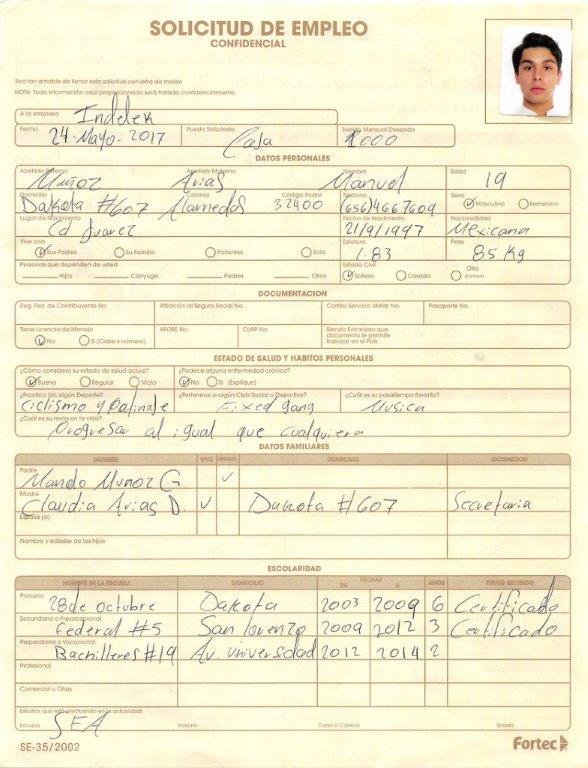 SOLICITUD DE EMPLEO
CONFIDENCIAL
Sea tan amable de llenar esta solicitud con letra de molde
NOTA: Toda información aquí proporcionada será tratada confidencialmente.
A la empresa Indelek
Fecha Puesto Solicitado Sueldo Mensual Deseado
24-Mayo-2017 Caja 1000
DATOS PERSONALES
Apellido Paterno Apellido Materno Nombre Edad
Muñoz Arias Manuel 19
Domicilio Colonia Código Postal Teléfono Sexo
Dakota #607 Alamedas 32400 (656)4667609 Masculino Femenino
Lugar de Nacimiento Fecha de Nacimiento Nacionalidad
Cd Juarez 21/9/1997 Mexicana
Vive con Estatura Peso
Sus Padres Su Familia Parientes Solo 1.83 85 Kg
Personas que dependen de usted Estado Civil
Hijos Cónyuge Padres Otros Soltero Casado Otro (Explique)
DOCUMENTACION
Reg. Fed. de Contribuyente No. Afiliación al Seguro Social No. Cartilla Servicio Militar No. Pasaporte No.
Tiene Licencia de Manejo AFORE No. CURP No. Siendo Extranjero que
No Si (Clase y número) documento le permite
trabajar en el País
ESTADO DE SALUD Y HABITOS PERSONALES
¿Cómo considera su estado de salud actual? ¿Padece alguna enfermedad crónica?
Bueno Regular Malo No Si (Explique)
¿Practica Ud. algún Deporte? ¿Pertenece a algún Club Social o Deportivo? ¿Cuál es su pasatiempo favorito?
Ciclismo y Patinaje Fixed gang Musica
¿Cuál es su meta en la vida?
Progresar al igual que cualquiera
DATOS FAMILIARES
NOMBRE VIVE FINADO DOMICILIO OCUPACION
Padre
Manolo Muñoz G.
Madre
Claudia Arias D. Dakota #607 Secretaria
Esposa (o)
Nombre y edades de los hijos
ESCOLARIDAD
NOMBRE DE LA ESCUELA DOMICILIO FECHAS AÑOS TITULO RECIBIDO
DE A
Primaria
28 de octubre Dakota 2003 2009 6 Certificado
Secundaria o Prevocacional
Federal #5 San lorenzo 2009 2012 3 Certificado
Preparatoria o Vocacional
Bachilleres #19 Av. universidad 2012 2014 2
Profesional
Comercial u Otras
Estudios que está efectuando en la actualidad:
SEA
Escuela Horario Curso o Carrera Grado
SE-35/2002 Fortec